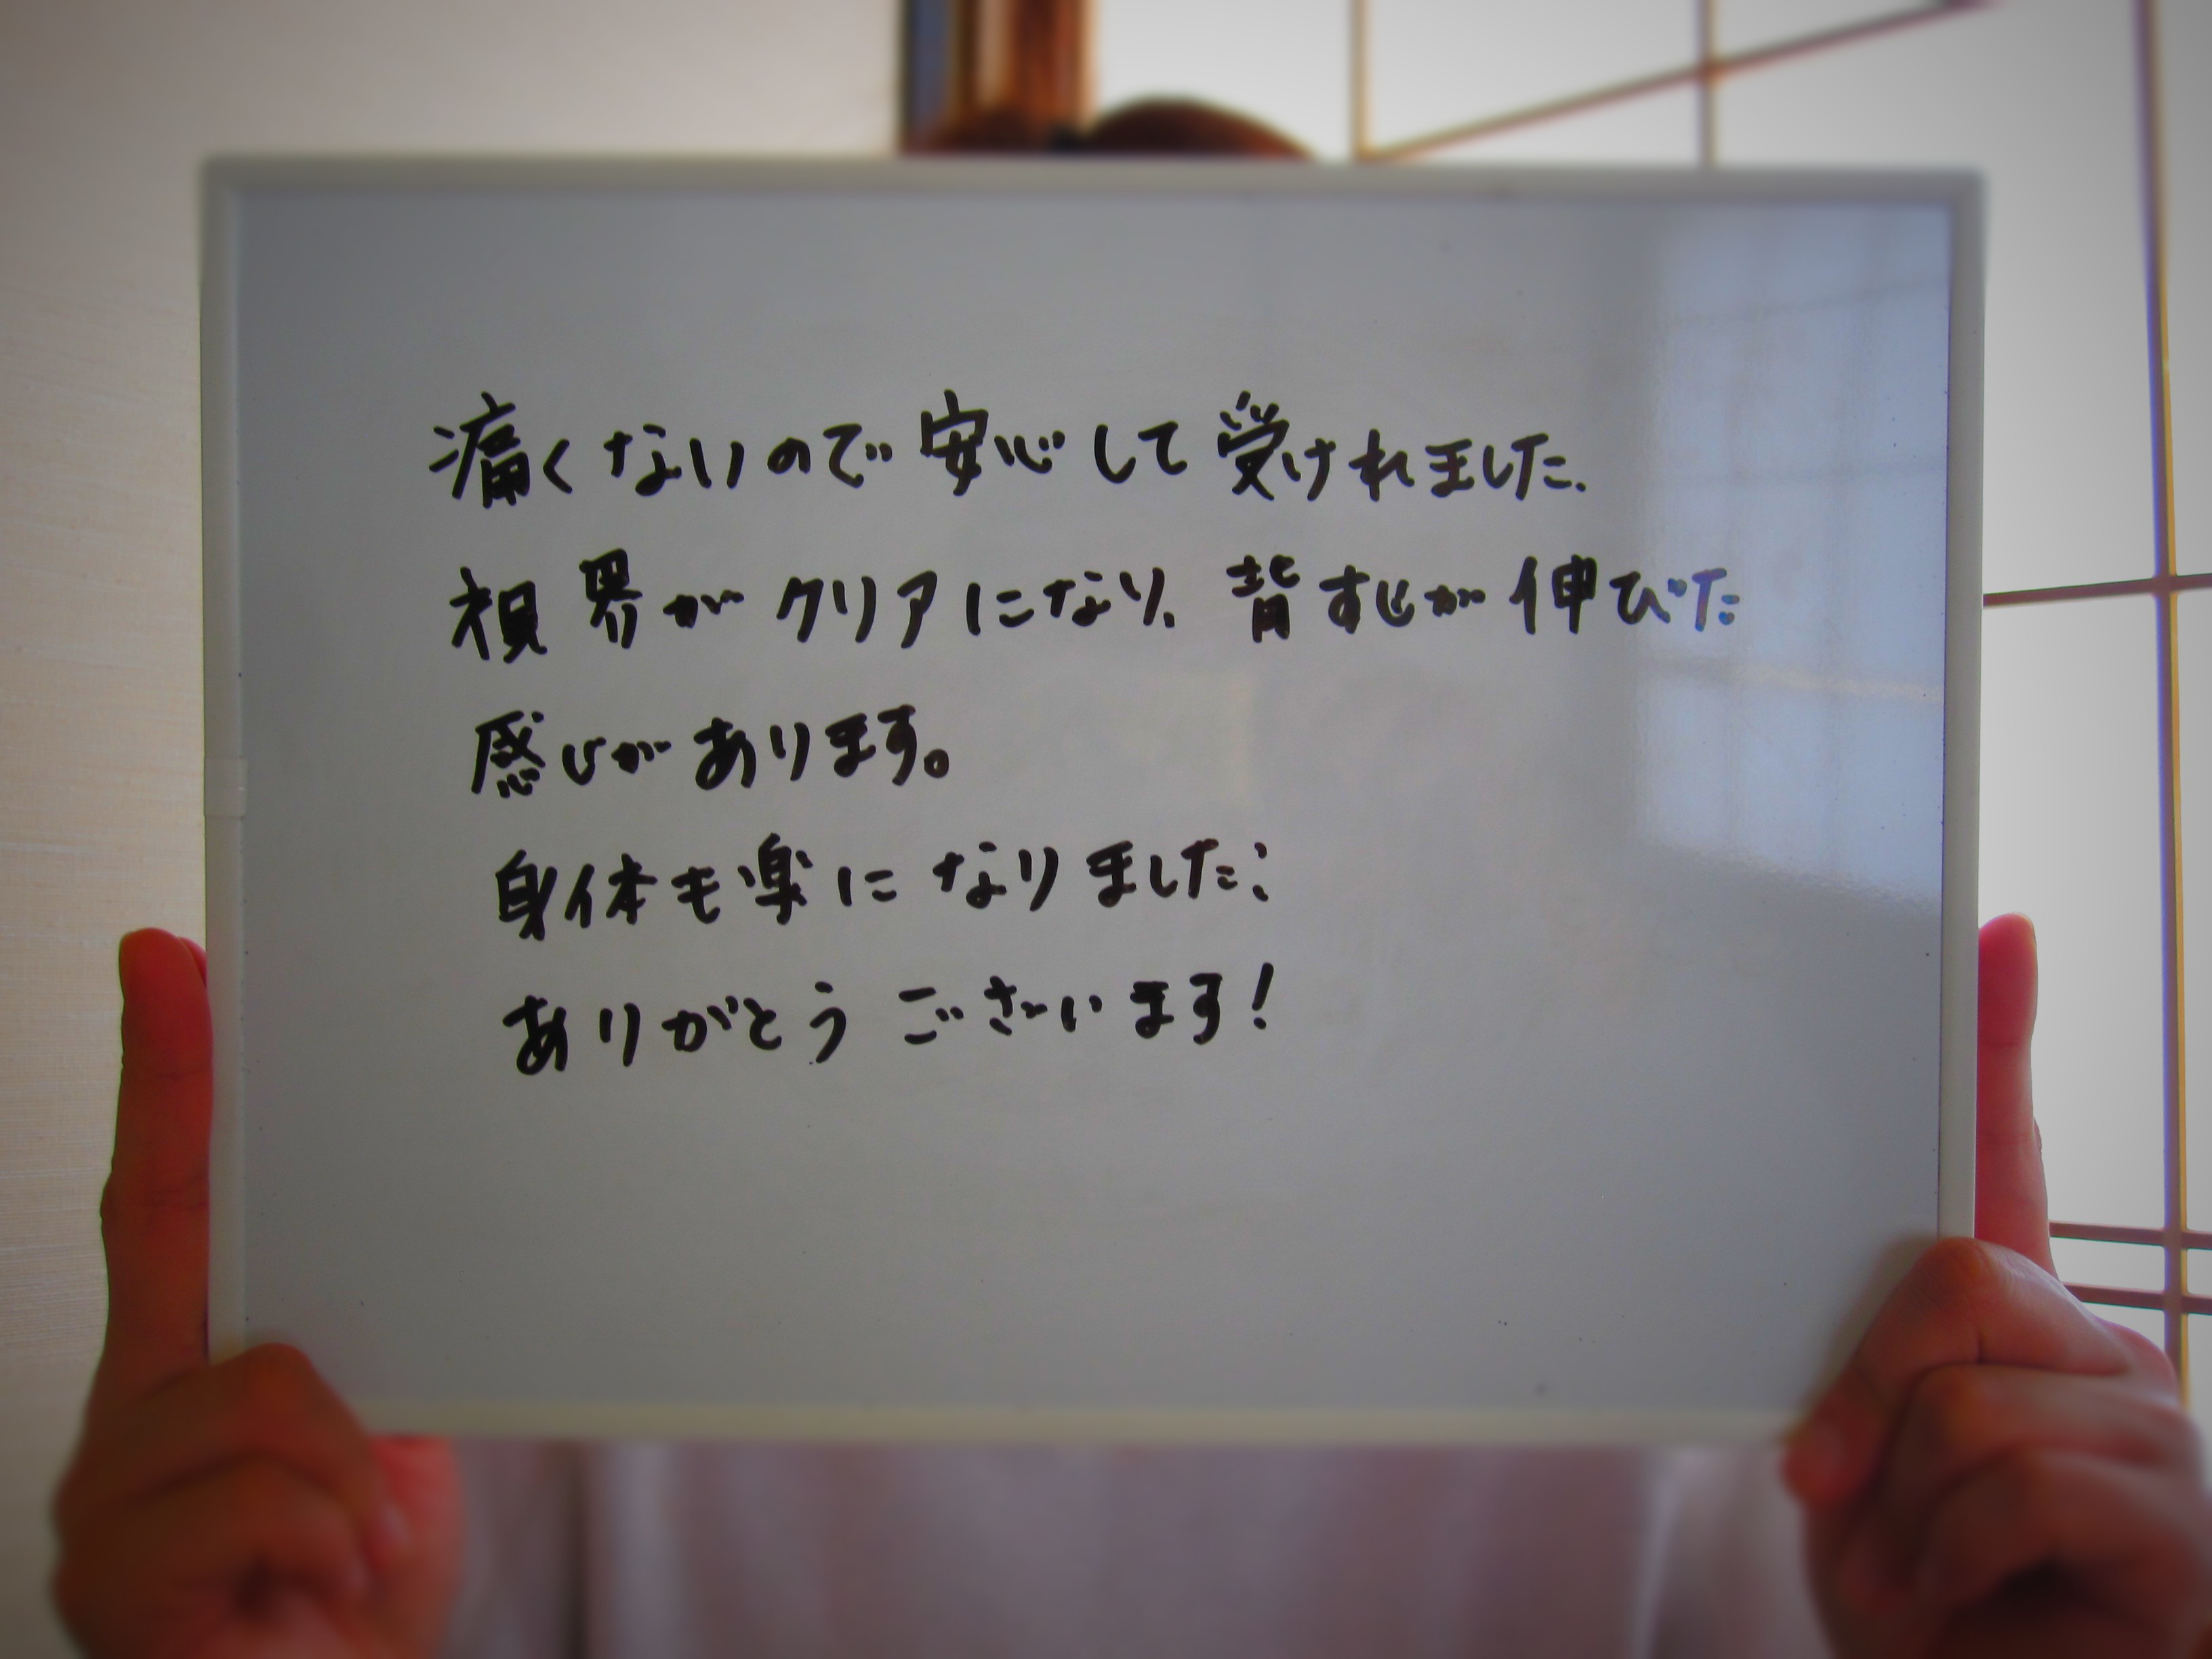 痛くないので安心して受けれました.
視界がクリアになり、背すじが伸びた
感じがあります。
身体も楽になりました:
ありがとうございます!